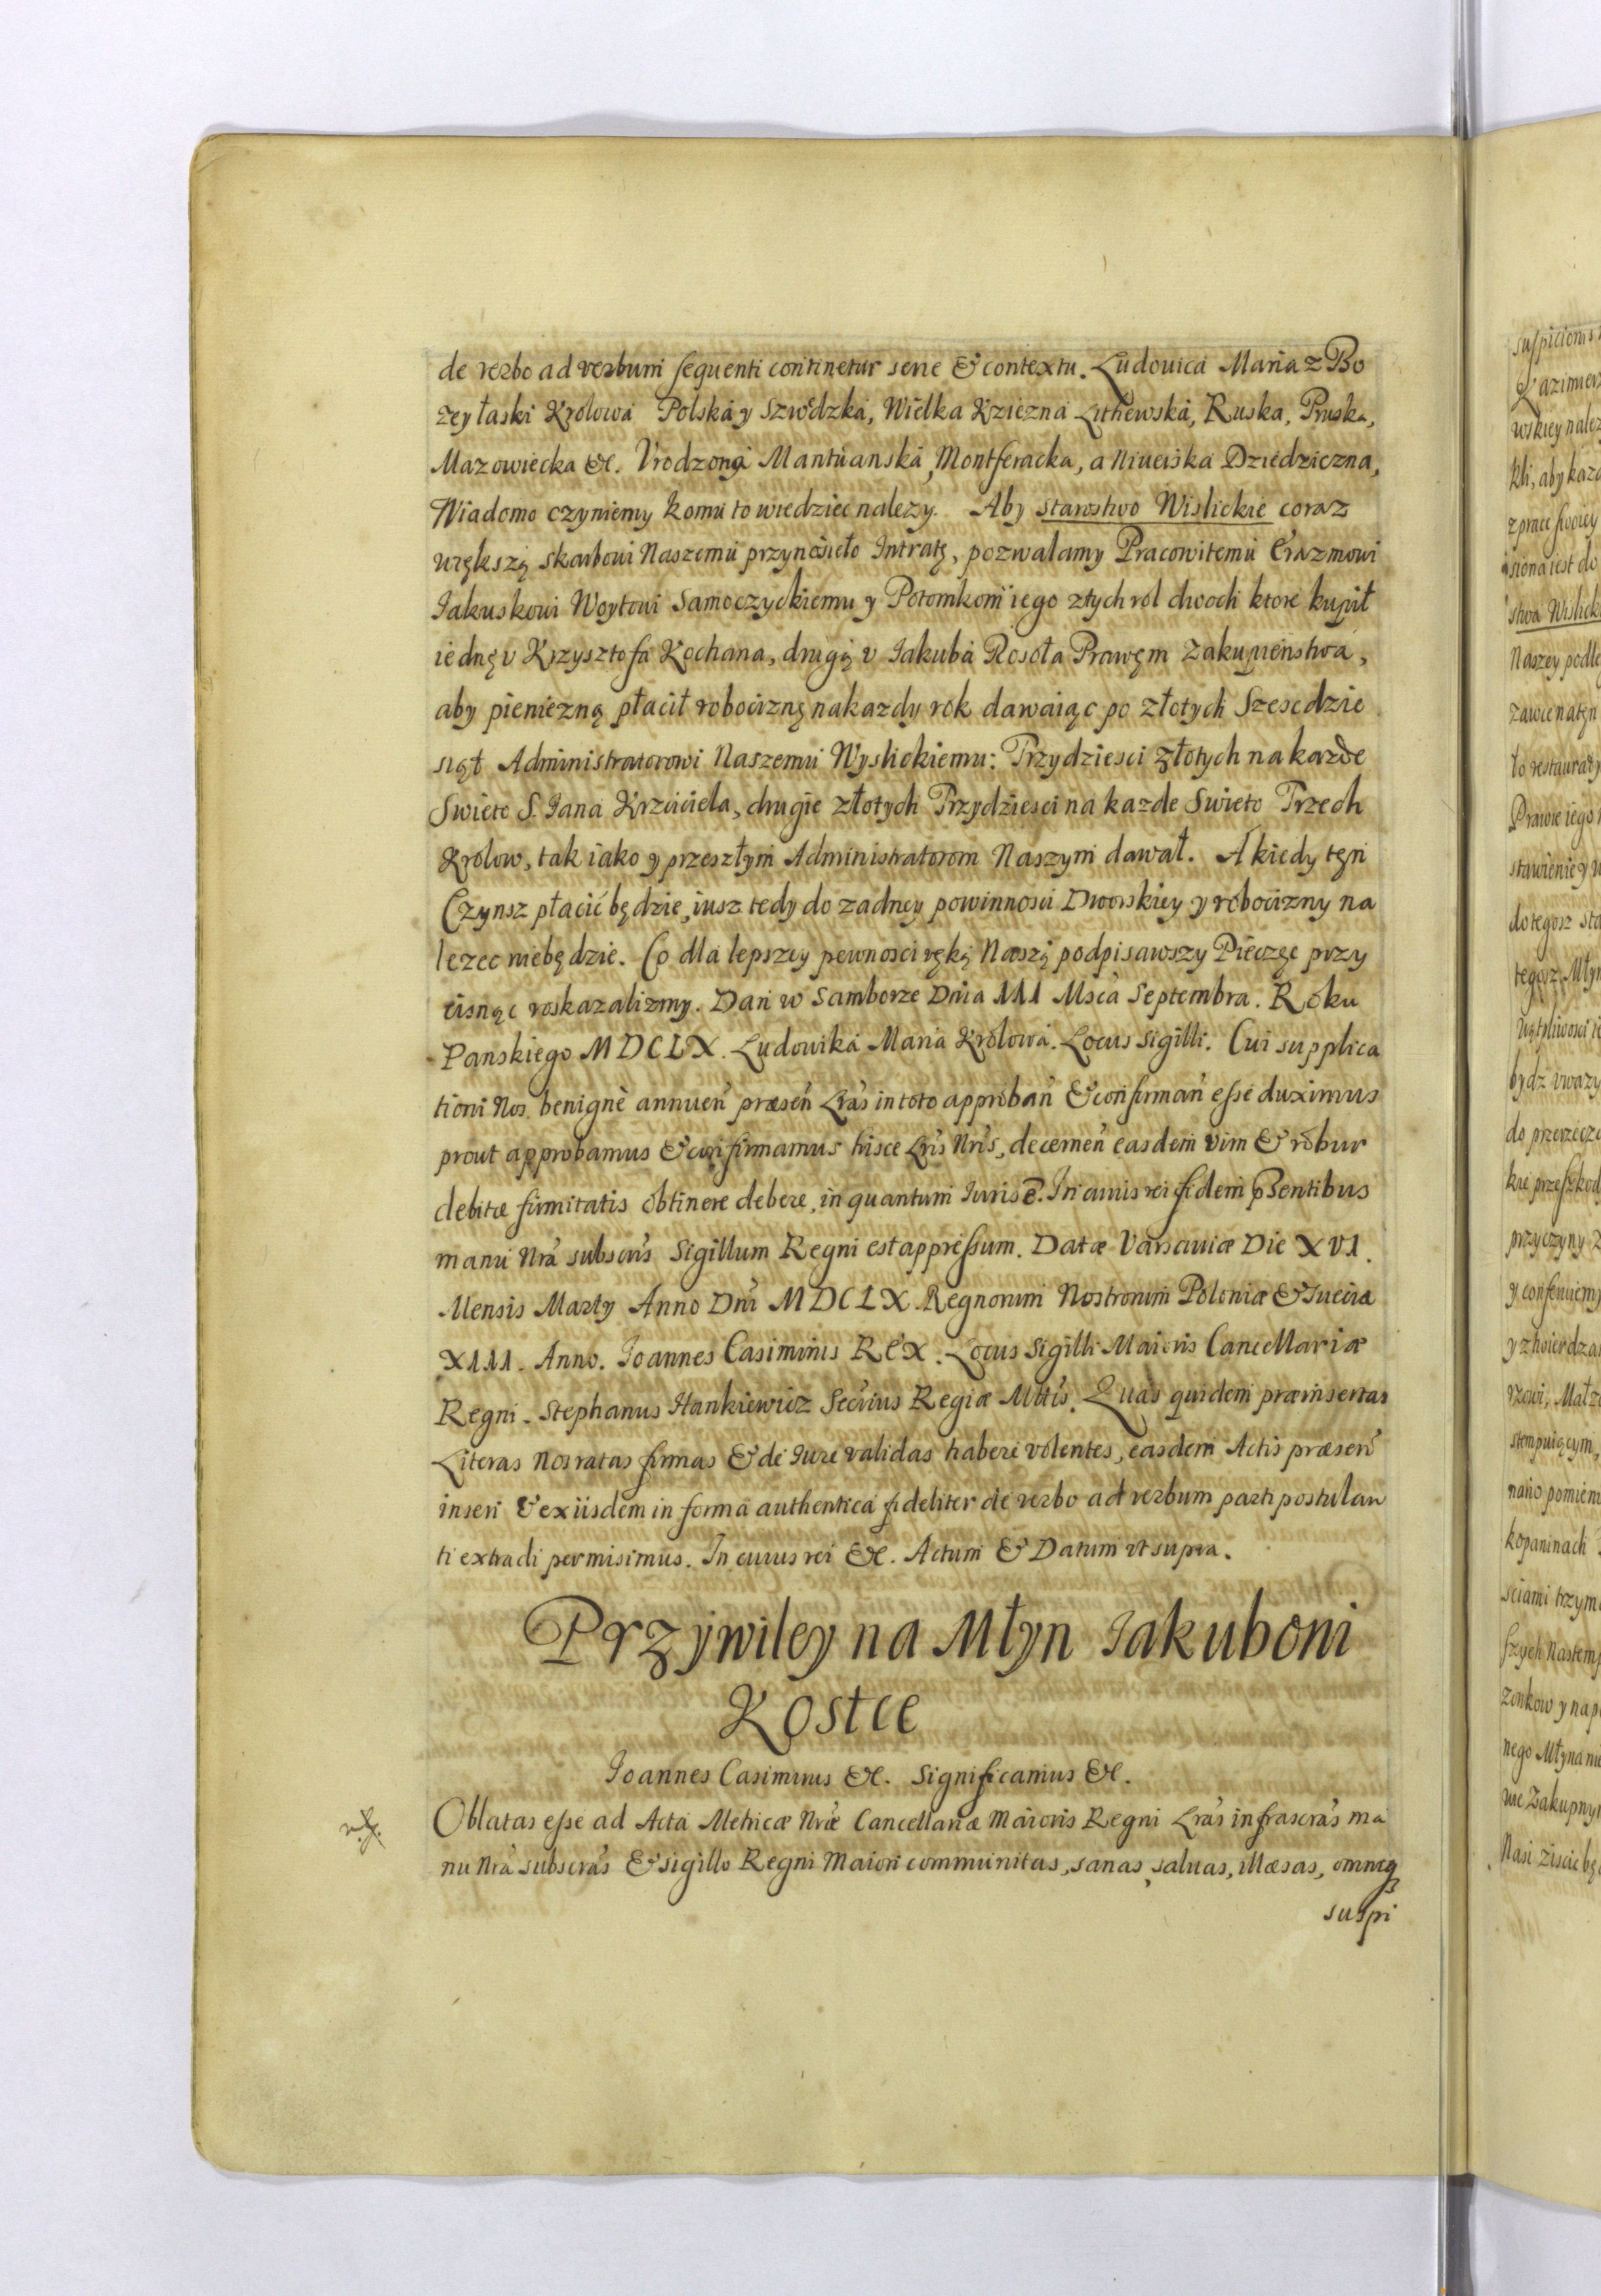 de verbo ad verbum sequenti continetur serie & contextu. Ludovica Maria z Bo
zey łaski Krolowa Polska y Szwedzka, Wielka Xziezna Lithewska, Ruska, Pruska,
Mazowiecka &c. Vrodzona Mantuanska, Montferacka, a Niuerska Dziedziczna,
Wiadomo czyniemy komu to wiedziec nalezy. Aby starostwo Wislickie coraz
większą skarbowi Naszemu przynosieło Intratę, pozwalamy Pracowitemu Erazmowi
Iakuskowi Woytowi Samoczyckiemu y Potomkom iego z tych rol dwoch ktore kupił
iednę v Krzysztofa Kochana, drugą v Iakuba Rosoła Prawęm Zakupienstwa,
aby pieniezną płacił robociznę na kazdy rok dawaiąc po złotych Szescdzie
siąt Administratorowi Naszemu Wyslickiemu: Trzydziesci złotych na kazde
Swieto S. Iana Krzciciela, drugie złotych Trzydziesci na kazde Swieto Trzech
Krolow, tak iako y przeszłym Administratorom Naszym dawał. A kiedy tęn
Czynsz płacić będzie, iusz tedy do zadney powinnosci Dworskiey y robocizny na
lezec niebędzie. Co dla lepszey pewnosci ręką Naszą podpisawszy Pieczęc przy
cisnąc roskazalizmy. Dan w Samborze Dnia III Msca Septembra. Roku
Panskiego MDCLX. Ludowika Maria Krolowa. Locus Sigilli. Cui supplica
tioni Nos. benignè annuen̄ præsen̄ Lr̄as in toto approban̄ & confirman̄ esse duximus
prout approbamus & confirmamus hisce Lr̄is Nr̄is, decernen̄ easdem vim & robur
debitæ firmitatis obtinere debere, in quantum Iuris ē. In cuius rei fidem pn̄tibus
manu Nrā subscr̄is Sigillum Regni est appressum. Datæ Varsaviæ Die XVI.
Mensis Marty Anno Dnī MDCLX Regnorum Nostrorum Poloniæ & Sueciæ
XIII. Anno. Ioannes Casimirus REX. Locus Sigilli Maioris Cancellariæ
Regni. Stephanus Hankiewicz Secr̄ius Regiæ Mttis. Quas quidem præinsertas
Literas Nos ratas firmas & de Iure validas haberi volentes, easdem Actis præsen̄
inseri & ex iisdem in forma authentica fideliter de verbo ad verbum parti postulan
ti extradi permisimus. In cuius rei &c. Actum & Datum vt supra.
Przywiley na Młyn Iakubowi
Kostce
Ioannes Casimirus &c. Significamus &c.
Oblatas esse ad Acta Metricæ Nrǣ Cancellariæ Maioris Regni Lr̄as infrascr̄as ma
nu Nrā subscr̄as & sigillo Regni Maiori communitas, sanas, saluas, illæsas, omniq
suspi
suspicionis
Kazimierz
wskiey należ
kli, aby kazd
z prace swoiey
siona iest do
stwa Wislick
Naszey podle
ło restauraty
Prawie iego
stawienie y
do tegosz sta
tegosz Młyn
bydz vwazy
do przerzecz
kie przeszkod
przyczyny
y consensiem
y ztwierdza
stempuiącym,
nano pomien
kopaninach
sciami trzym
szych Nastemp
zonkow y nap
nego Młyna ni
we Zakupny
Nasi ziscic bę